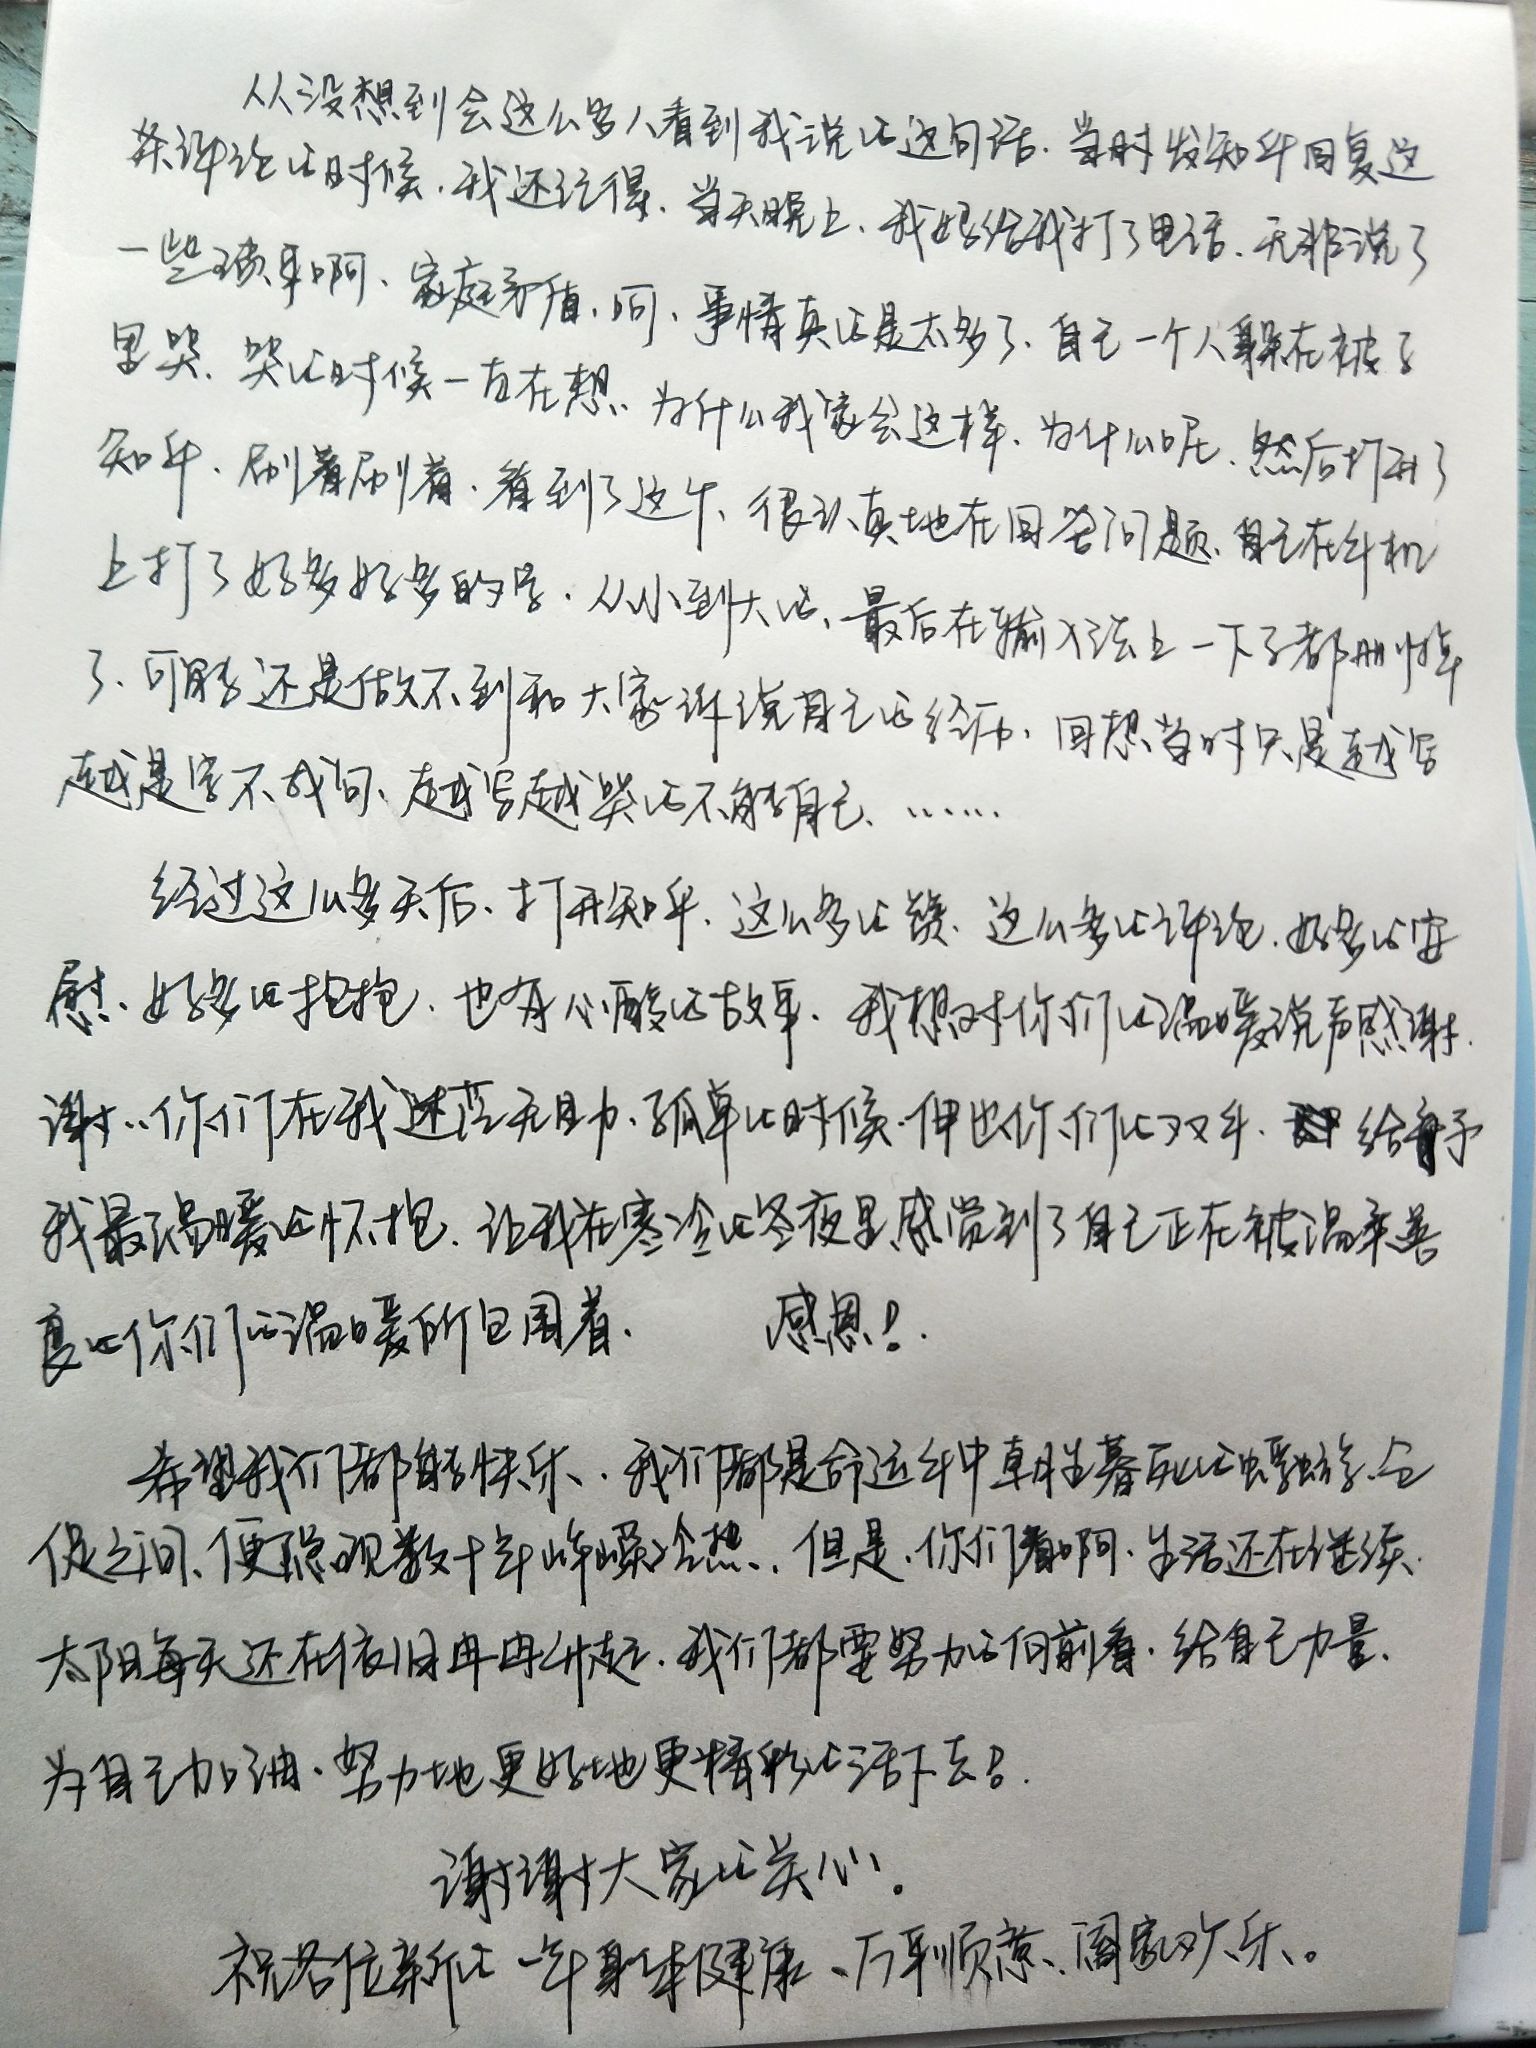 从没想到会这么多人看到我说的这句话、当时发知乎回复这
条评论的时候、我还记得、当天晚上、我妈给我打了电话、无非说了
一些琐事啊、家庭矛盾、啊、事情真的是太多了、自己一个人躲在被子
里哭、哭的时候一直在想、为什么我家会这样、为什么呢、然后打开了
知乎、刷着刷着、看到了这个、很认真地在回答问题、自己在手机
上打了好多好多的字、从小到大的、最后在输入法上一下子都删掉
了、可能还是做不到和大家诉说自己的经历、回想当时只是越写
越是字不成句、越写越哭的不能自已、……
经过这么多天后、打开知乎、这么多的赞、这么多的评论、好多的安
慰、好多的抱抱、也有心酸的故事、我想对你们的温暖说声感谢、
谢谢你们在我迷茫无助、孤单的时候、伸出你们的双手、给予
我最温暖的怀抱、让我在寒冷的冬夜里感觉到了自己正在被温柔善
良的你们的温暖所包围着、 感恩！
希望我们都能快乐、我们都是命运手中朝生暮死的蜉蝣、仓
促之间、便隐现数十年峥嵘冷热、但是、你们看啊、生活还在继续、
太阳每天还在依旧冉冉升起、我们都要努力的向前看、给自己力量、
为自己加油、努力地更好地更精彩的活下去！
谢谢大家的关心。
祝各位新的一年身体健康、万事顺意、阖家欢乐。